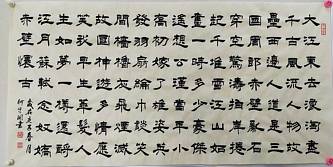 大江東去浪淘盡
千古風流人物故
壘西邊人道是三
國周郎赤壁亂石
穿空驚濤拍岸卷
起千堆雪江山如
畫一時多少豪傑
遙想公瑾當年小
喬初嫁了雄姿英
發羽扇綸巾談笑
間檣櫓灰飛煙滅
故國神遊多情應
笑我早生華髮人
生如夢一尊還酹
江月蘇軾念奴嬌
赤壁懷古